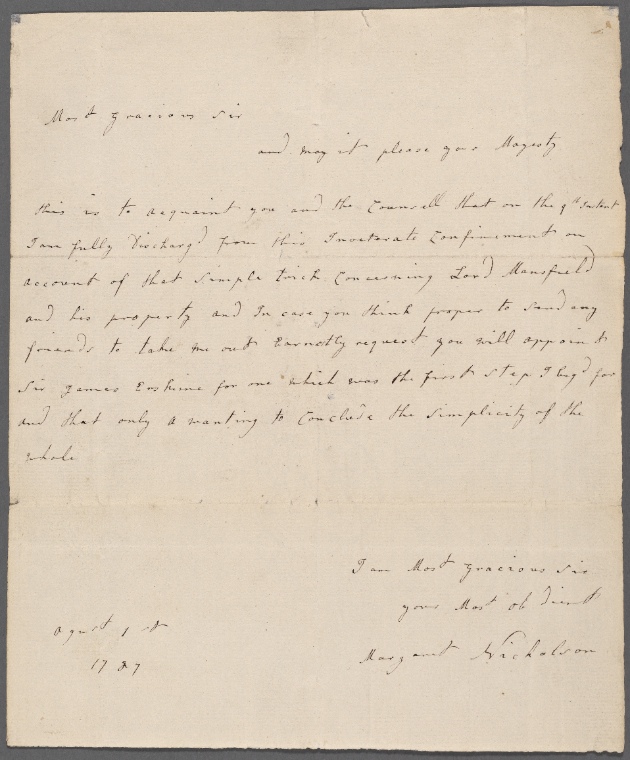 Most gracious Sir
and may it please your Magesty
this is to acquaint you and the Counsell that on the 9th Instent
I am fully Discharg'd from this Inveterate Confinement on
account of that simple trick Concerning Lord Mansfield
and his property and In case you think proper to Send any
friends to take me out Earnestly request you will appoint
Sir james Erskine for one which was the first step I beg'd for
and that only a wanting to Conclude the simplicity of the
whole
I am Most gracious Sir
your Most obdient
Margaret Nicholson
agust 1st
1787